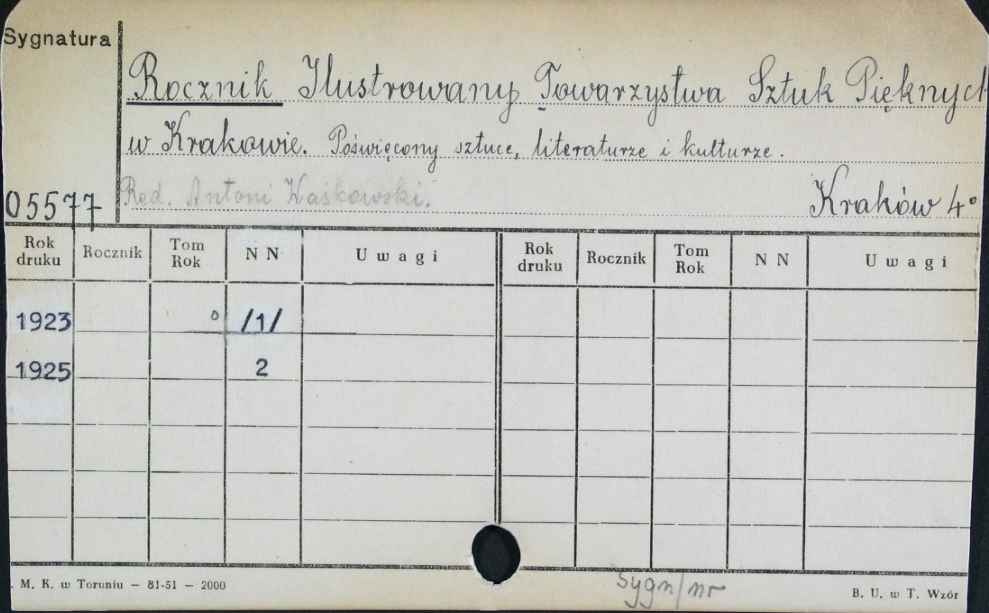 Sygnatura
Rocznik Ilustrowany Towarzystwa Sztuk Pięknych
w Krakowie. Poświęcony sztuce, literaturze i kulturze.
05577 Red. Antoni Waśkowski. Kraków 4°
Rok druku Rocznik Tom Rok N N Uwagi Rok druku Rocznik Tom Rok N N Uwagi
1923 /1/
1925 2
. M. K. w Toruniu — 81-51 — 2000
Sygn/nr
B. U. w T. Wzór